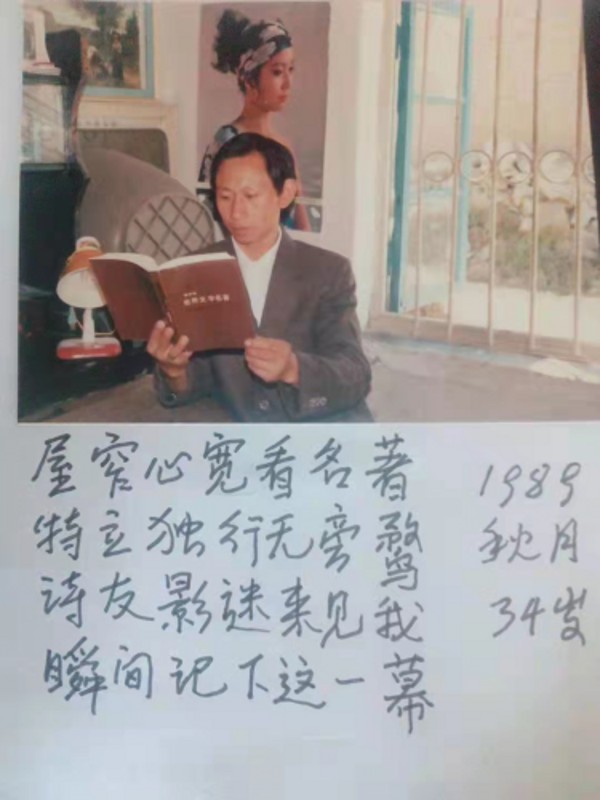 屋窄心宽看名著
特立独行无旁骛
诗友影谜来见我
瞬间记下这一幕
1989
秋月
34岁